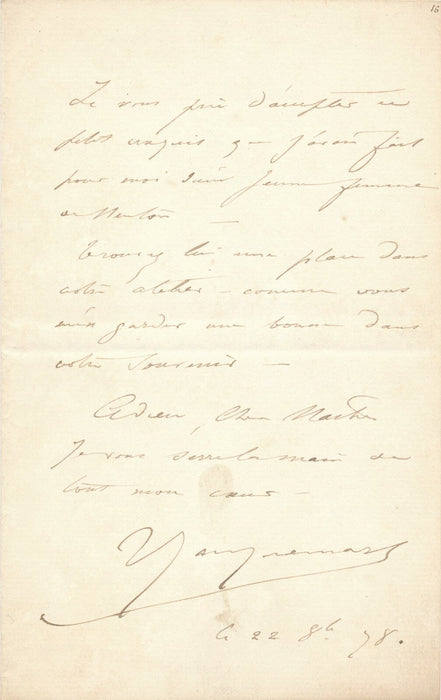 16
Je vous prie d'accepter ce
petit croquis que j'avais fait
pour moi d'une jeune femme
de Menton —
Trouvez lui une place dans
votre atelier — comme vous
m'en gardez une bonne dans
votre souvenir —
Adieu, Cher Maître
Je vous serre la main de
tout mon cœur —
le 22 8bre 78.